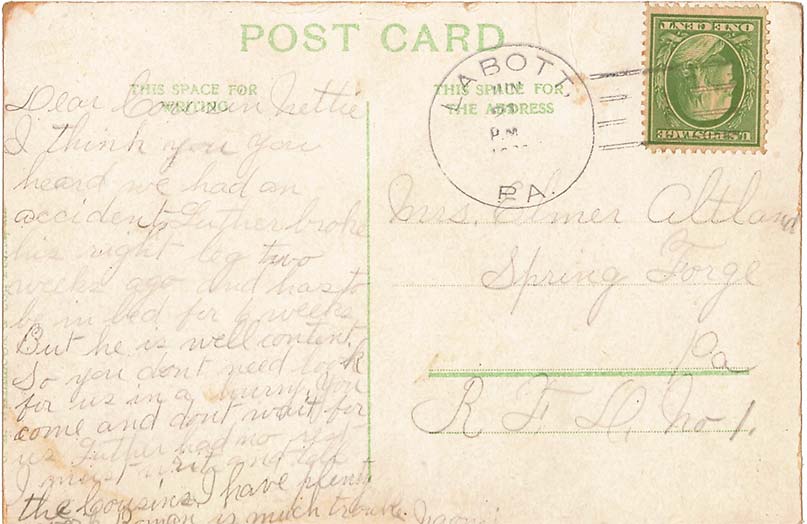 POST CARD
THIS SPACE FOR
WRITING
THIS SPACE FOR
THE ADDRESS
LABOTT,
JUN
P.M.
PA.
U.S. POSTAGE
ONE CENT
Dear Cousin Nettie
I think you you
heard we had an
accident, Luther broke
his right leg two
weeks ago and has to
be in bed for 6 weeks
But he is well content
So you dont need look
for us in a hurry, You
come and dont wait for
us Luther had no
I must write and tell
the cousins I have plenty
is much trouble
Mrs. Elmer Altland
Spring Forge
Pa
R F D, No 1.